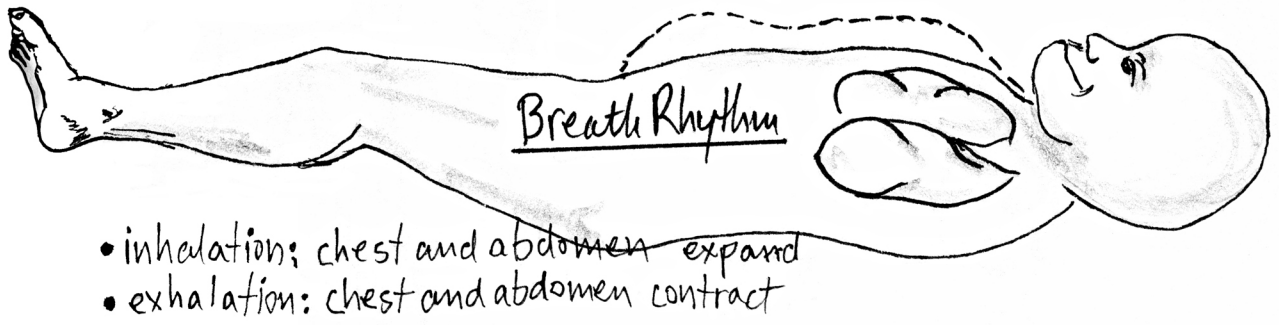 Breath Rhythm
• inhalation: chest and abdomen expand
• exhalation: chest and abdomen contract